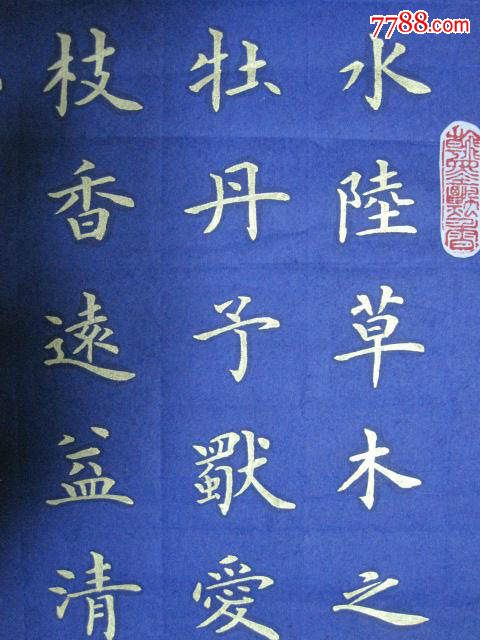 7788.com
水陸草木之
牡丹予獨愛
枝香遠益清